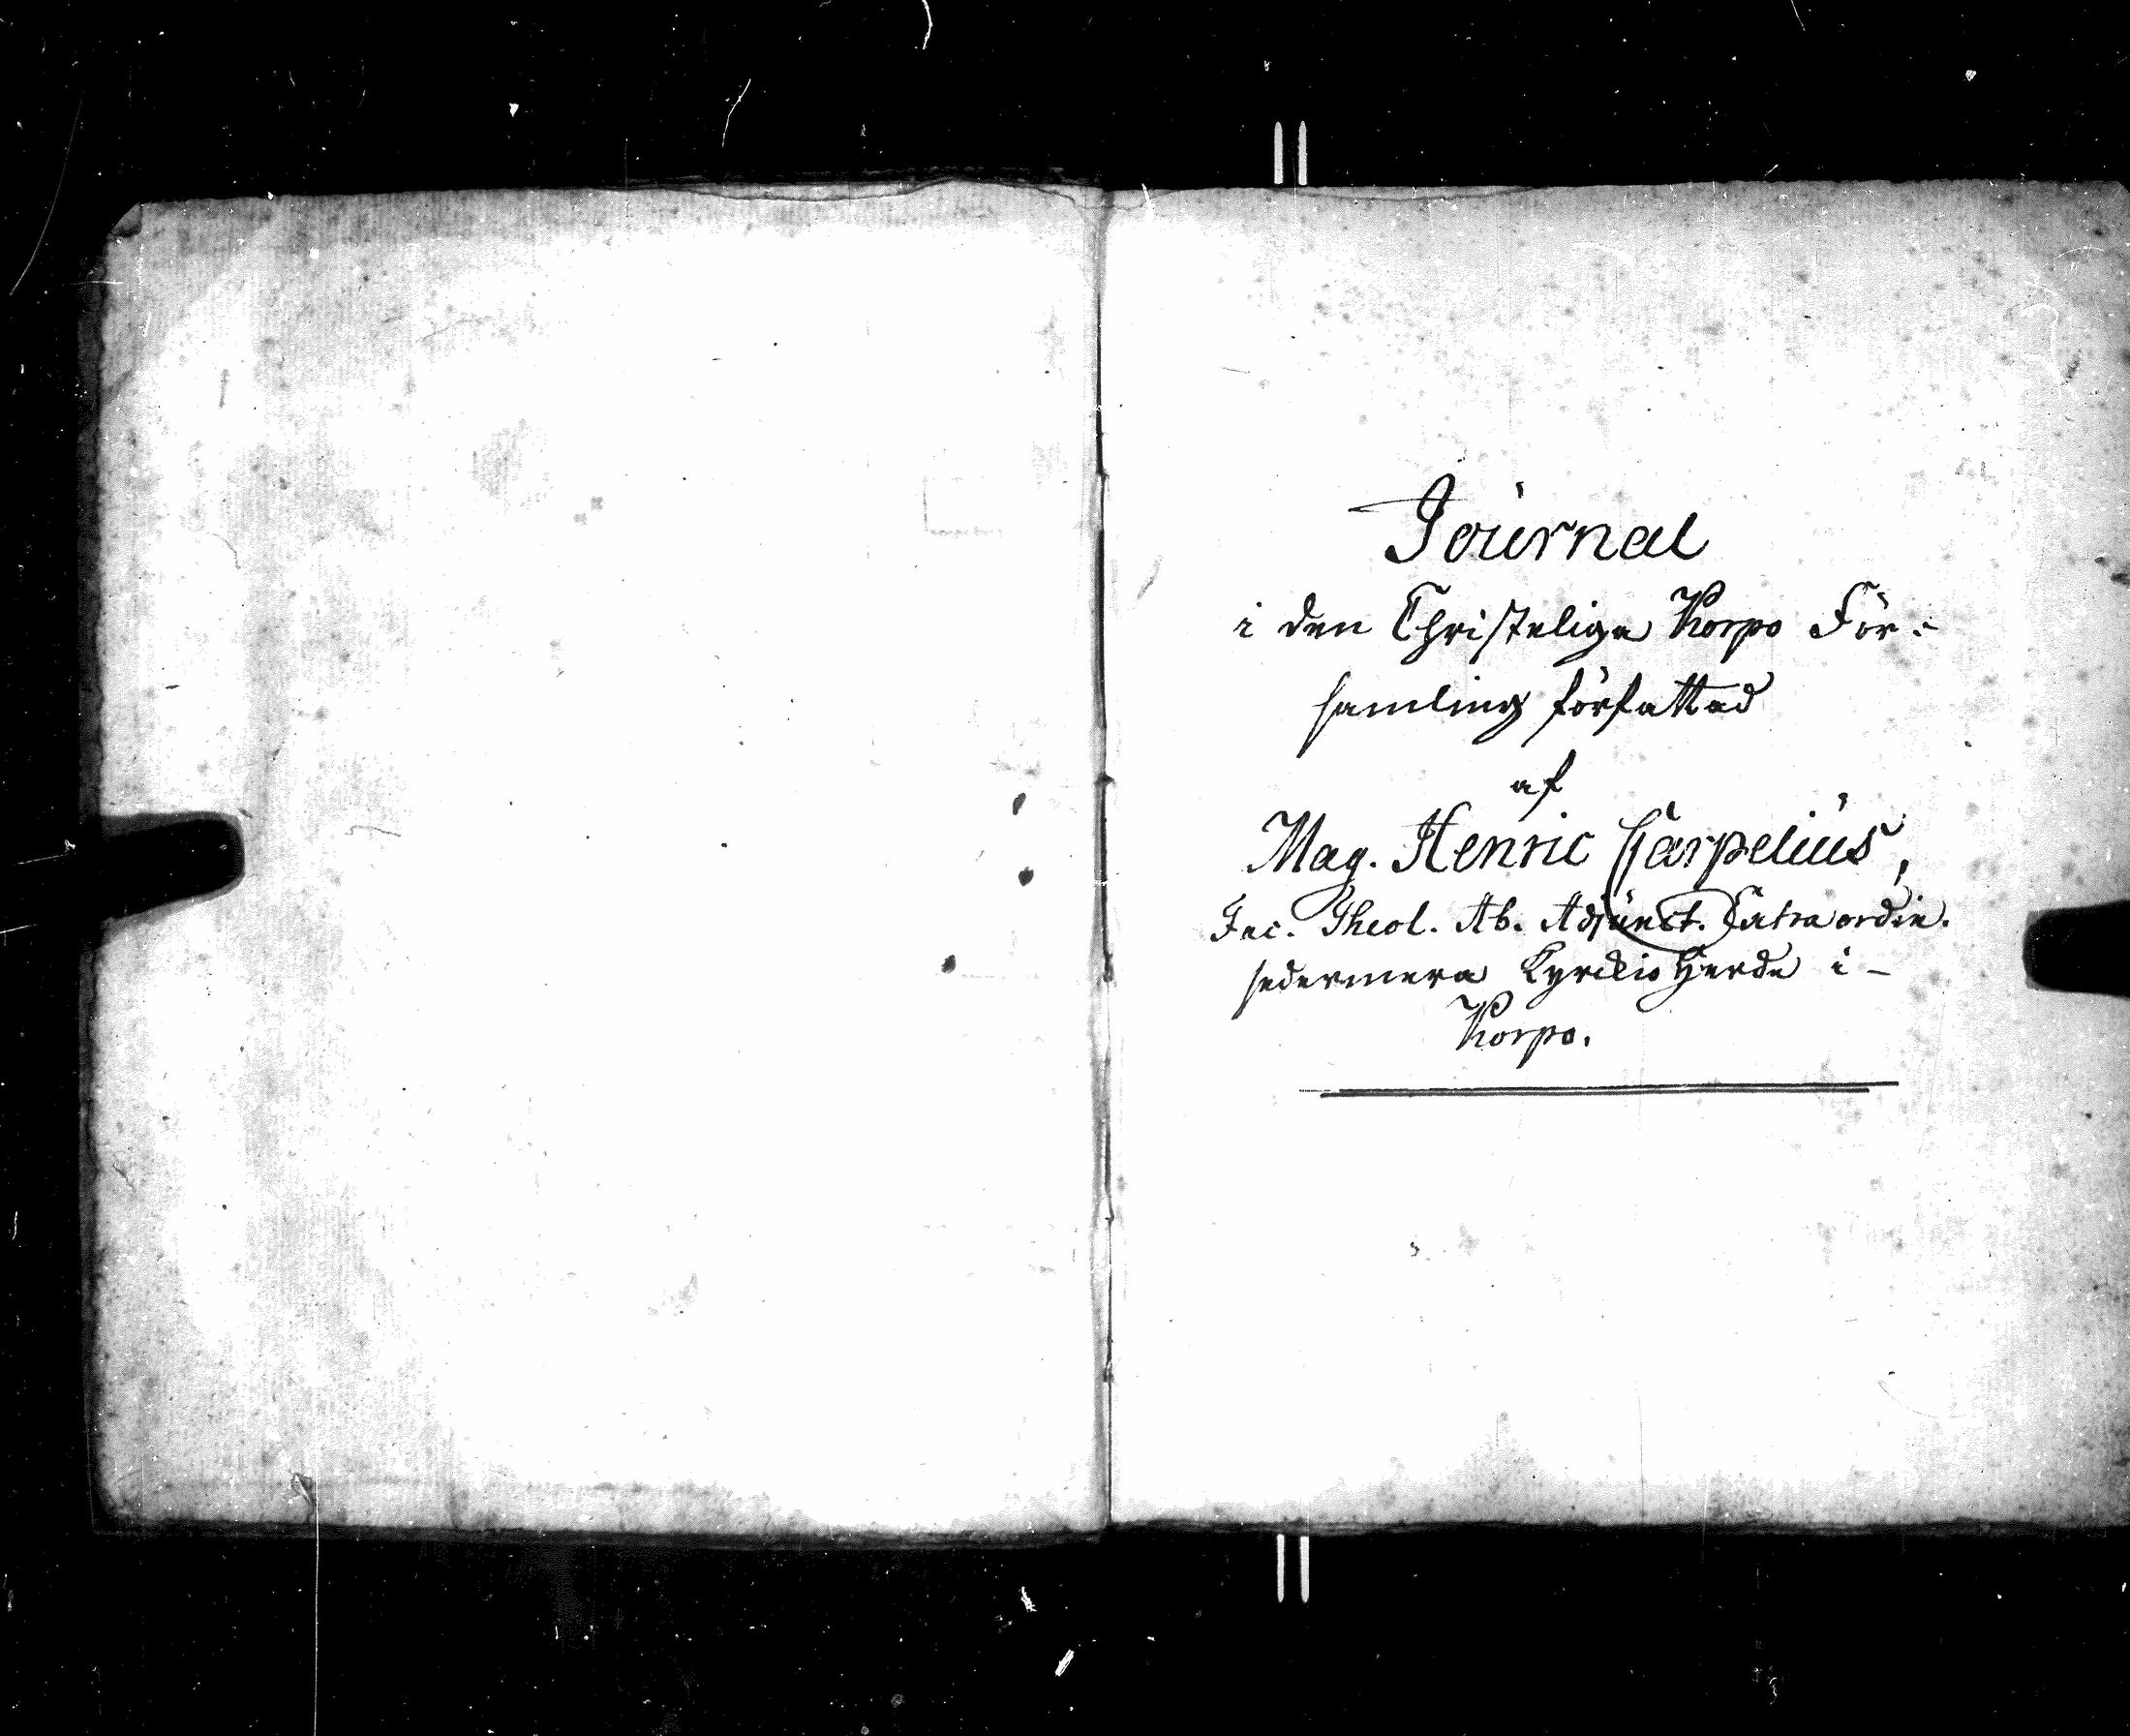 Journal
i den Christeliga Korpo För-
samling författad
af
Mag. Henric Carpelius,
Fac. Theol. Ab. Adjunct. Extraordin.
sedermera Kyrckio Herde i -
Korpo.